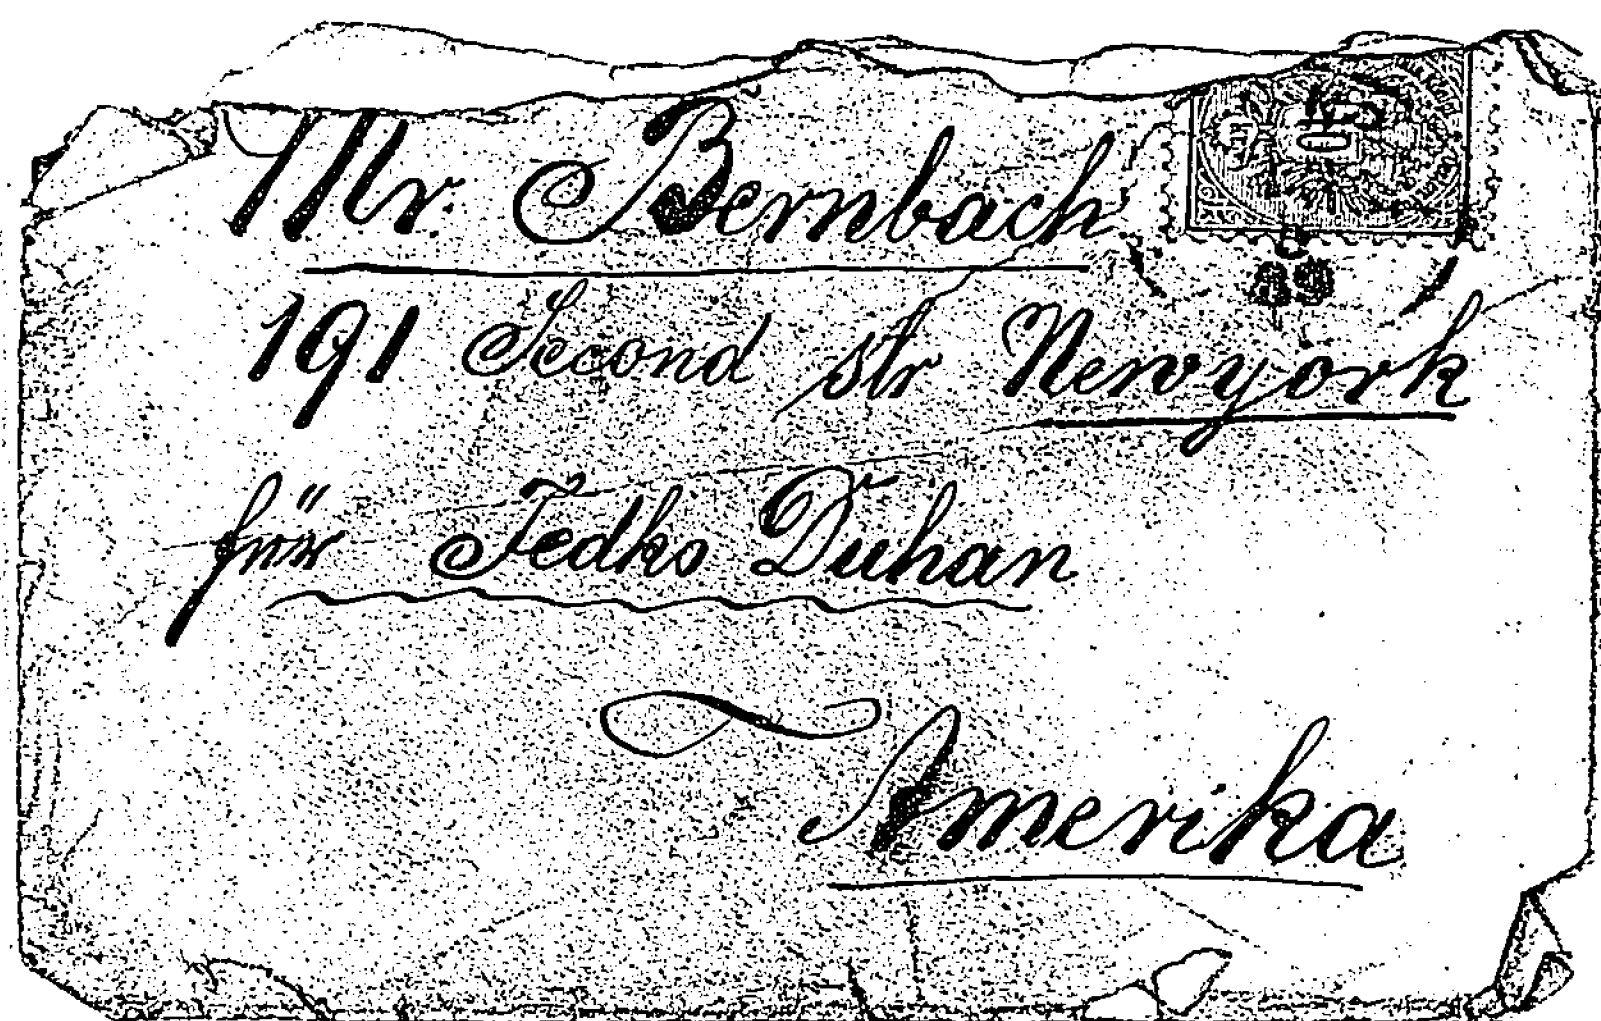 Mr. Bernbach
191 Second str Newyork
für Fedko Duhan
Amerika
10
89